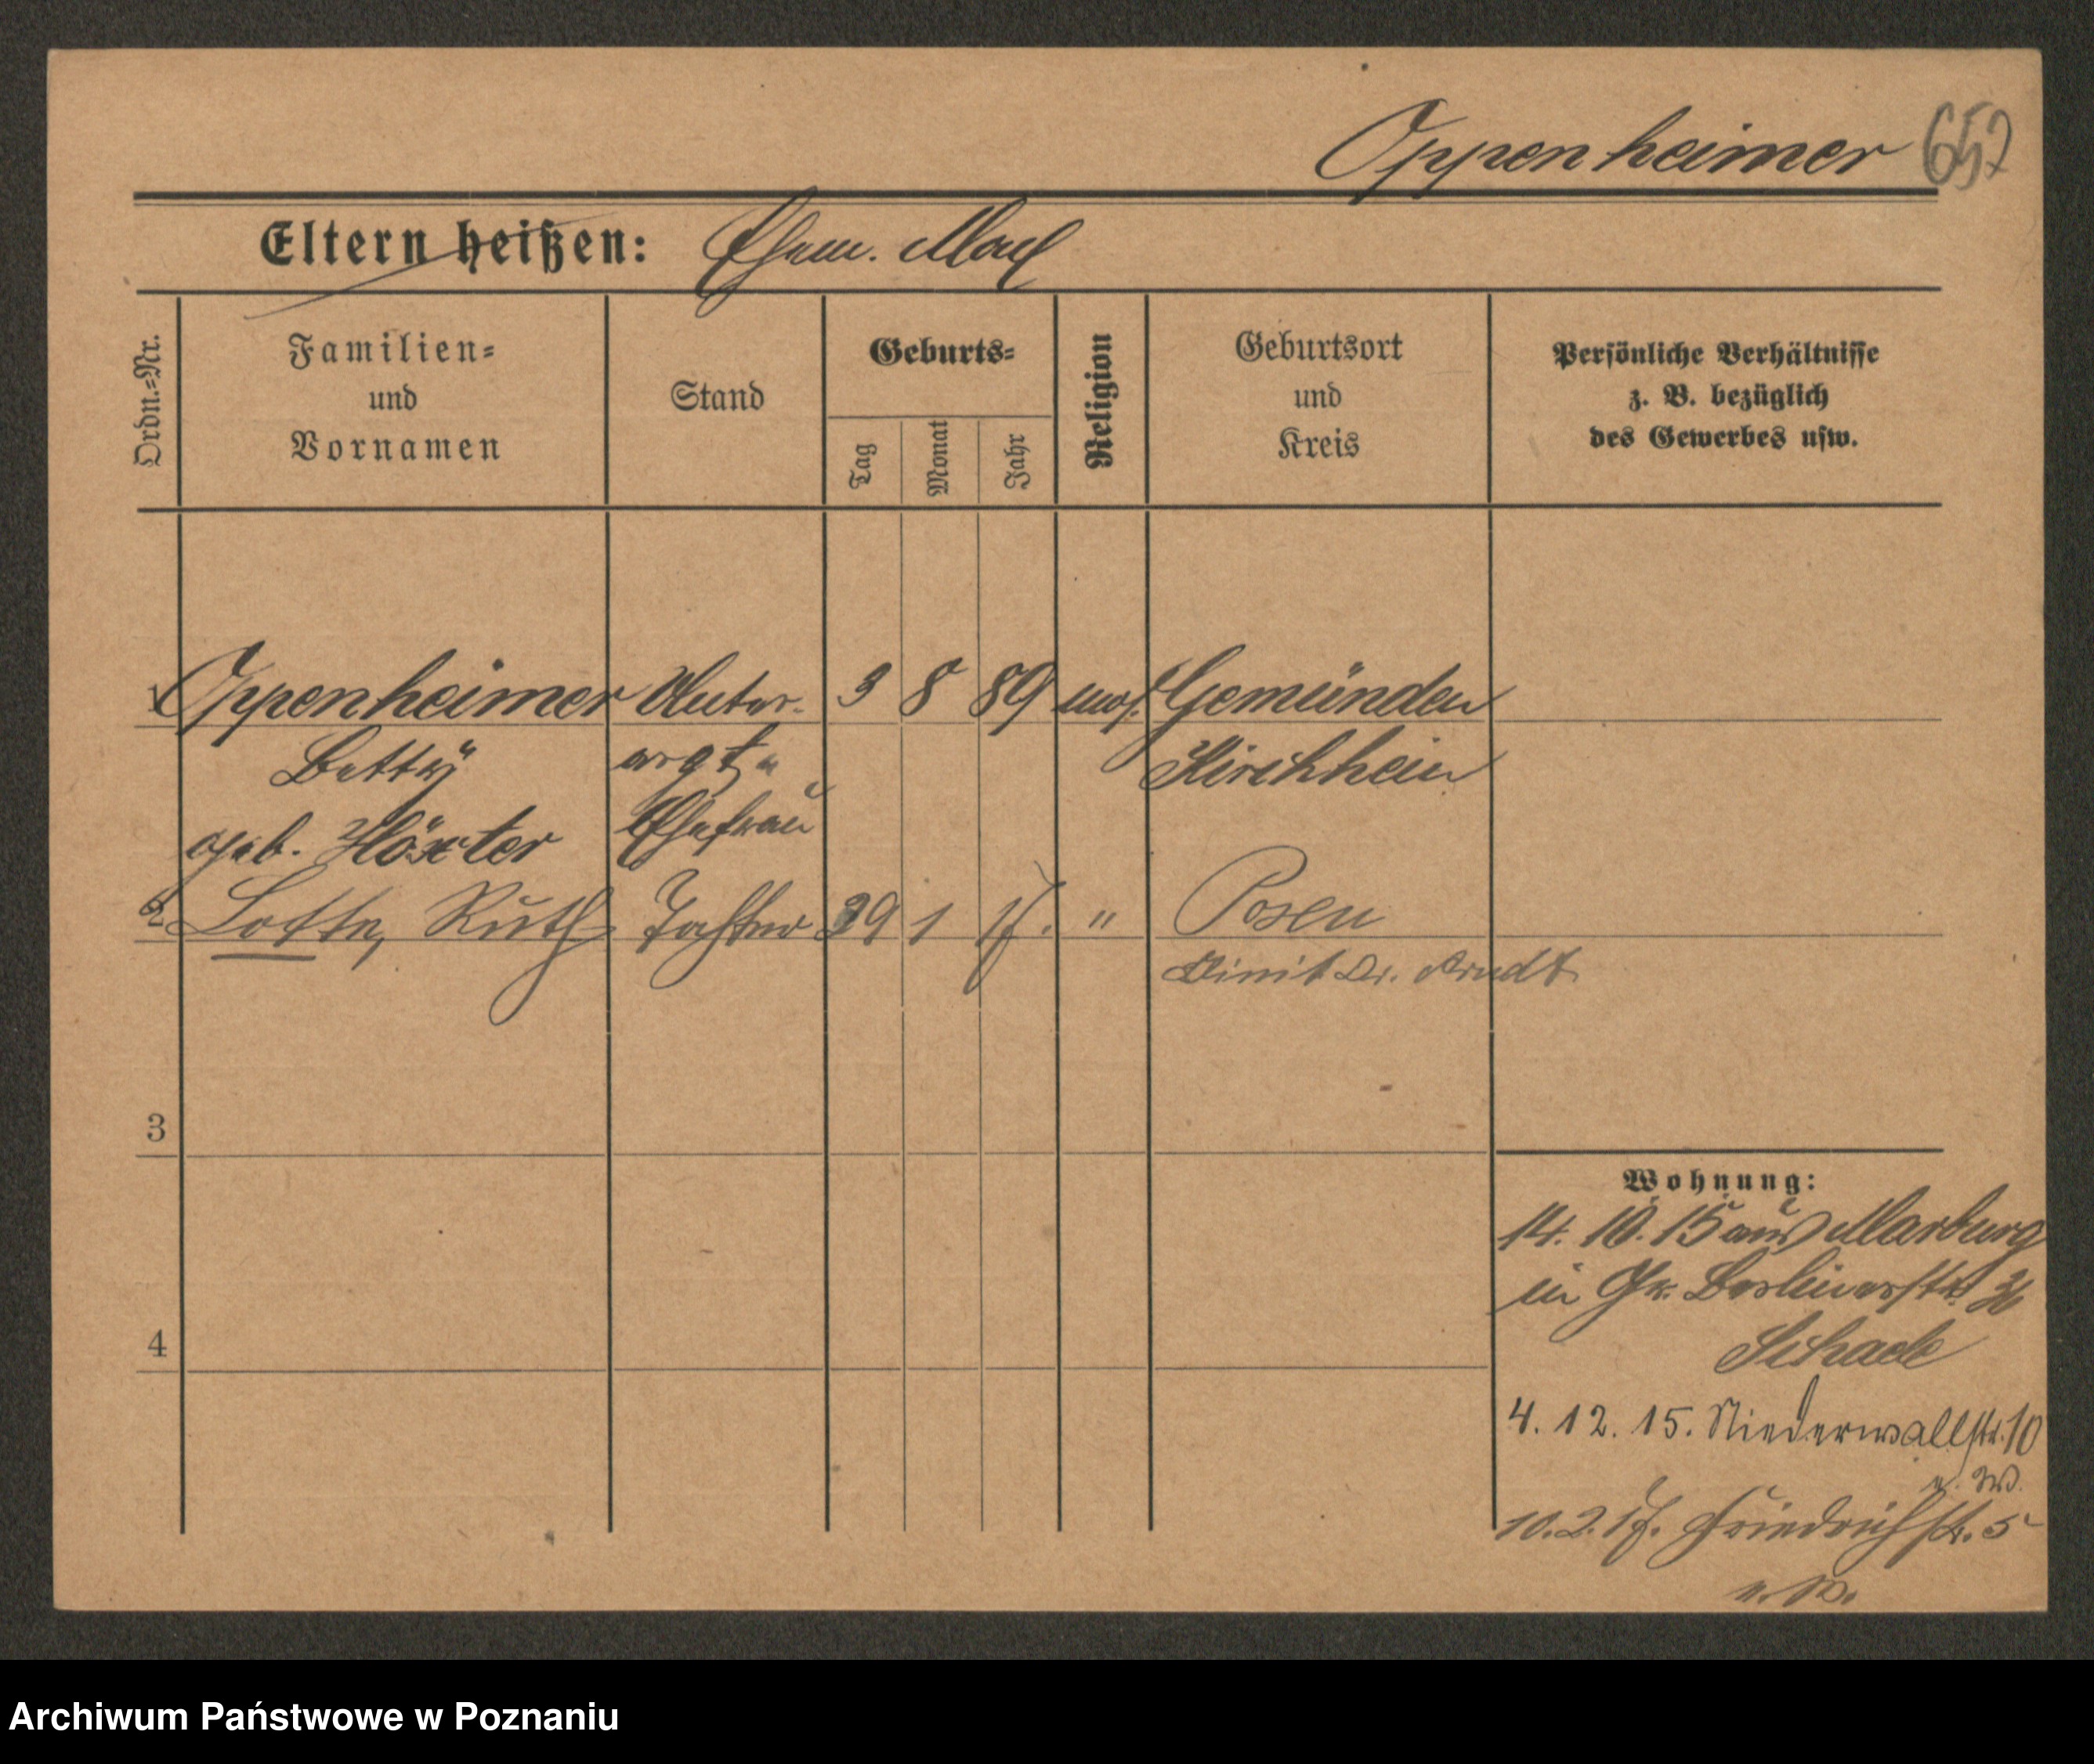 Oppenheimer 652
Eltern heißen: Ehem. Max
Ordn.=Nr.
Familien=
und
Vornamen
Stand
Geburts=
Tag
Monat
Jahr
Religion
Geburtsort
und
Kreis
Persönliche Verhältnisse
z. B. bezüglich
des Gewerbes usw.
1 Oppenheimer Unter- 3 8 89 mos. Gemünden
Betty argt- Kirchhein
geb. Höxter Ehefrau
2 Lotte, Ruth Tochter 29 1 17. " Posen
Dr. Arndt
3
4
Wohnung:
14. 10. 15 aus Marburg
in Gr. Berlinerstr.
Schade
4. 12. 15. Niederwallstr. 10
u. W.
10. 2. 17. Friedrichstr. 5
u. W.
Archiwum Państwowe w Poznaniu